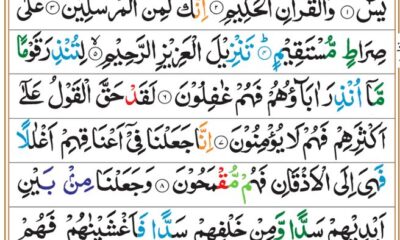 يٰسٓ ۝١ وَالْقُرْاٰنِ الْحَكِيْمِ ۝٢ اِنَّكَ لَمِنَ الْمُرْسَلِيْنَ ۝٣ عَلٰى
صِرَاطٍ مُّسْتَقِيْمٍ ۝٤ تَنْزِيْلَ الْعَزِيْزِ الرَّحِيْمِ ۝٥ لِتُنْذِرَ قَوْمًا
مَّاۤ اُنْذِرَ اٰبَآؤُهُمْ فَهُمْ غٰفِلُوْنَ ۝٦ لَقَدْ حَقَّ الْقَوْلُ عَلٰٓى
اَكْثَرِهِمْ فَهُمْ لَا يُؤْمِنُوْنَ ۝٧ اِنَّا جَعَلْنَا فِيْۤ اَعْنَاقِهِمْ اَغْلٰلًا
فَهِىَ اِلَى الْاَذْقَانِ فَهُمْ مُّقْمَحُوْنَ ۝٨ وَجَعَلْنَا مِنْۢ بَيْنِ
اَيْدِيْهِمْ سَدًّا وَّمِنْ خَلْفِهِمْ سَدًّا فَاَغْشَيْنٰهُمْ فَهُمْ